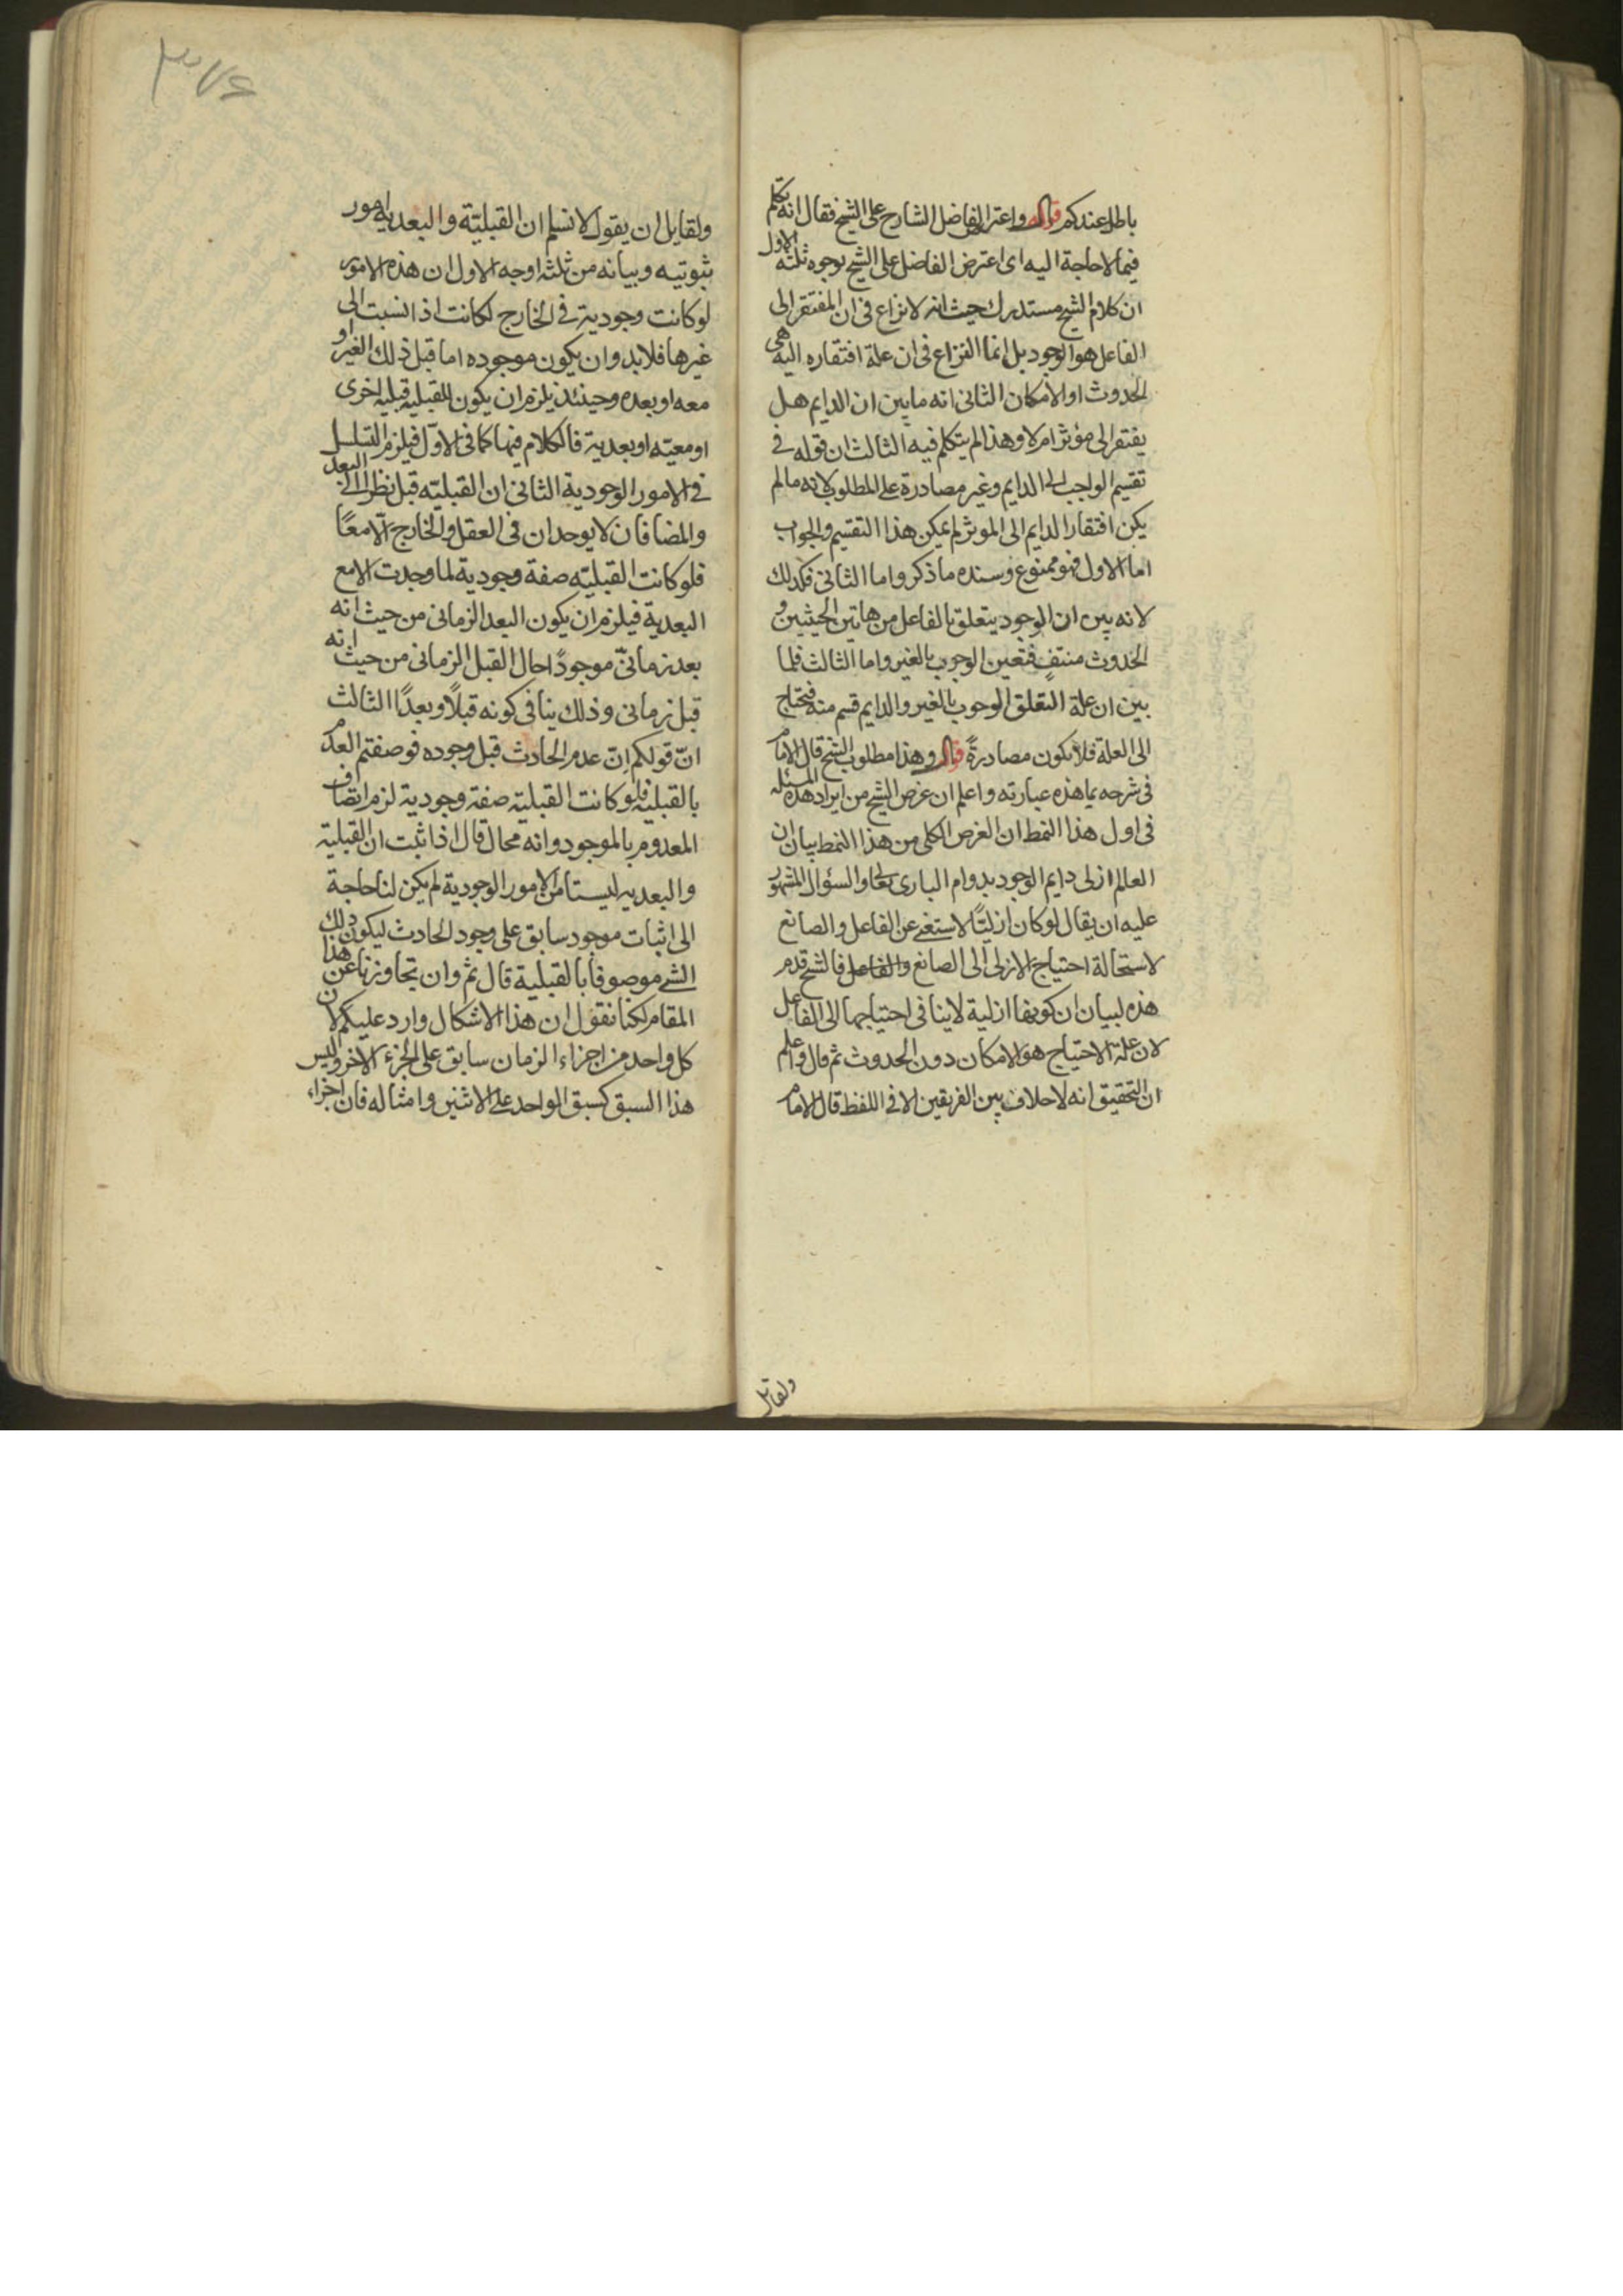 باطل عندكم قوله واعترض الفاضل الشارح على الشيخ فقال انه تكلم
فيما لا حاجة اليه اى اعترض الفاضل على الشيخ بوجوه ثلثه الاول
ان كلام الشيخ مستدرك حيث انه لا نزاع فى ان المفتقر الى
الفاعل هو الوجود بل انما النزاع فى ان علة افتقاره اليه هى
الحدوث او الامكان الثانى انه ما بين ان الدايم هل
يفتقر الى مؤثر ام لا وهذا لم يتكلم فيه الثالث ان قوله فى
تقسيم الواجب الى الدايم وغير مصادرة على المطلوب لانه ما لم
يكن افتقار الدايم الى الموثر لم يمكن هذا التقسيم والجواب
اما الاول فهو ممنوع وسنده ما ذكر واما الثانى فكذلك
لانه بين ان الوجود يتعلق بالفاعل من هاتين الحيثيين و
الحدوث منتفٍ فتعين الوجوب بالغير واما الثالث فلما
بين ان علة التعلق الوجوب بالغير والدايم قسم منه فيحتاج
الى العلة فلا يكون مصادرةً قوله وهذا مطلوب الشيخ قال الامام
فى شرحه بما هذه عبارته واعلم ان غرض الشيخ من ايراد هذه المسئله
فى اول هذا النمط ان الغرض الكلى من هذا النمط بيان ان
العالم ازلى دايم الوجود بدوام البارى تعالى والسؤال المشهور
عليه ان يقال لو كان ازليًّا لاستغنى عن الفاعل والصانع
لاستحالة احتياج الازلى الى الصانع والفاعل فالشيخ قدم
هذه لبيان ان كونها ازلية لا ينافى احتياجها الى الفاعل
لان علة الاحتياج هو الامكان دون الحدوث ثم قال واعلم
ان التحقيق انه لا خلاف بين الفريقين الا فى اللفظ قال الامام
ولقايل
٣٧٤
ولقايل ان يقول لا نسلم ان القبليّة والبعدية امور
ثبوتيه وبيانه من ثلثه اوجه الاول ان هذه الامور
لو كانت وجودية فى الخارج لكانت اذا نسبت الى
غيرها فلا بد وان يكون موجوده اما قبل ذلك الغير او
معه او بعده وحينئذ يلزم ان يكون للقبليه قبليه اخرى
او معيّه او بعدية فالكلام فيها كما فى الاوّل فيلزم التسلسل
فى الامور الوجودية الثانى ان القبليّه قبل نظرا الى البعد
والمضافان لا يوجدان فى العقل والخارج الّا معًا
فلو كانت القبليّه صفة وجودية لما وجدت الا مع
البعدية فيلزم ان يكون البعد الزمانى من حيث انه
بعد زمانىّ موجودًا حال القبل الزمانى من حيث انه
قبل زمانى وذلك ينافى كونه قبلًا وبعدًا الثالث
انّ قولكم انّ عدم الحادث قبل وجوده فوصفتم العدم
بالقبليّه فلو كانت القبليّه صفة وجودية لزم اتصاف
المعدوم بالموجود وانه محال قال اذا ثبت ان القبلية
والبعديه ليستا من الامور الوجودية لم يكن لنا حاجة
الى اثبات موجود سابق على وجود الحادث ليكون ذلك
الشى موصوفا بالقبلية قال ثم وان تجاوزنا عن هذا
المقام لكنا نقول ان هذا الاشكال وارد عليكم لان
كل واحد من اجزاء الزمان سابق على الجزء الاخر وليس
هذا السبق كسبق الواحد على الاثنين وامثاله فان اجزاء